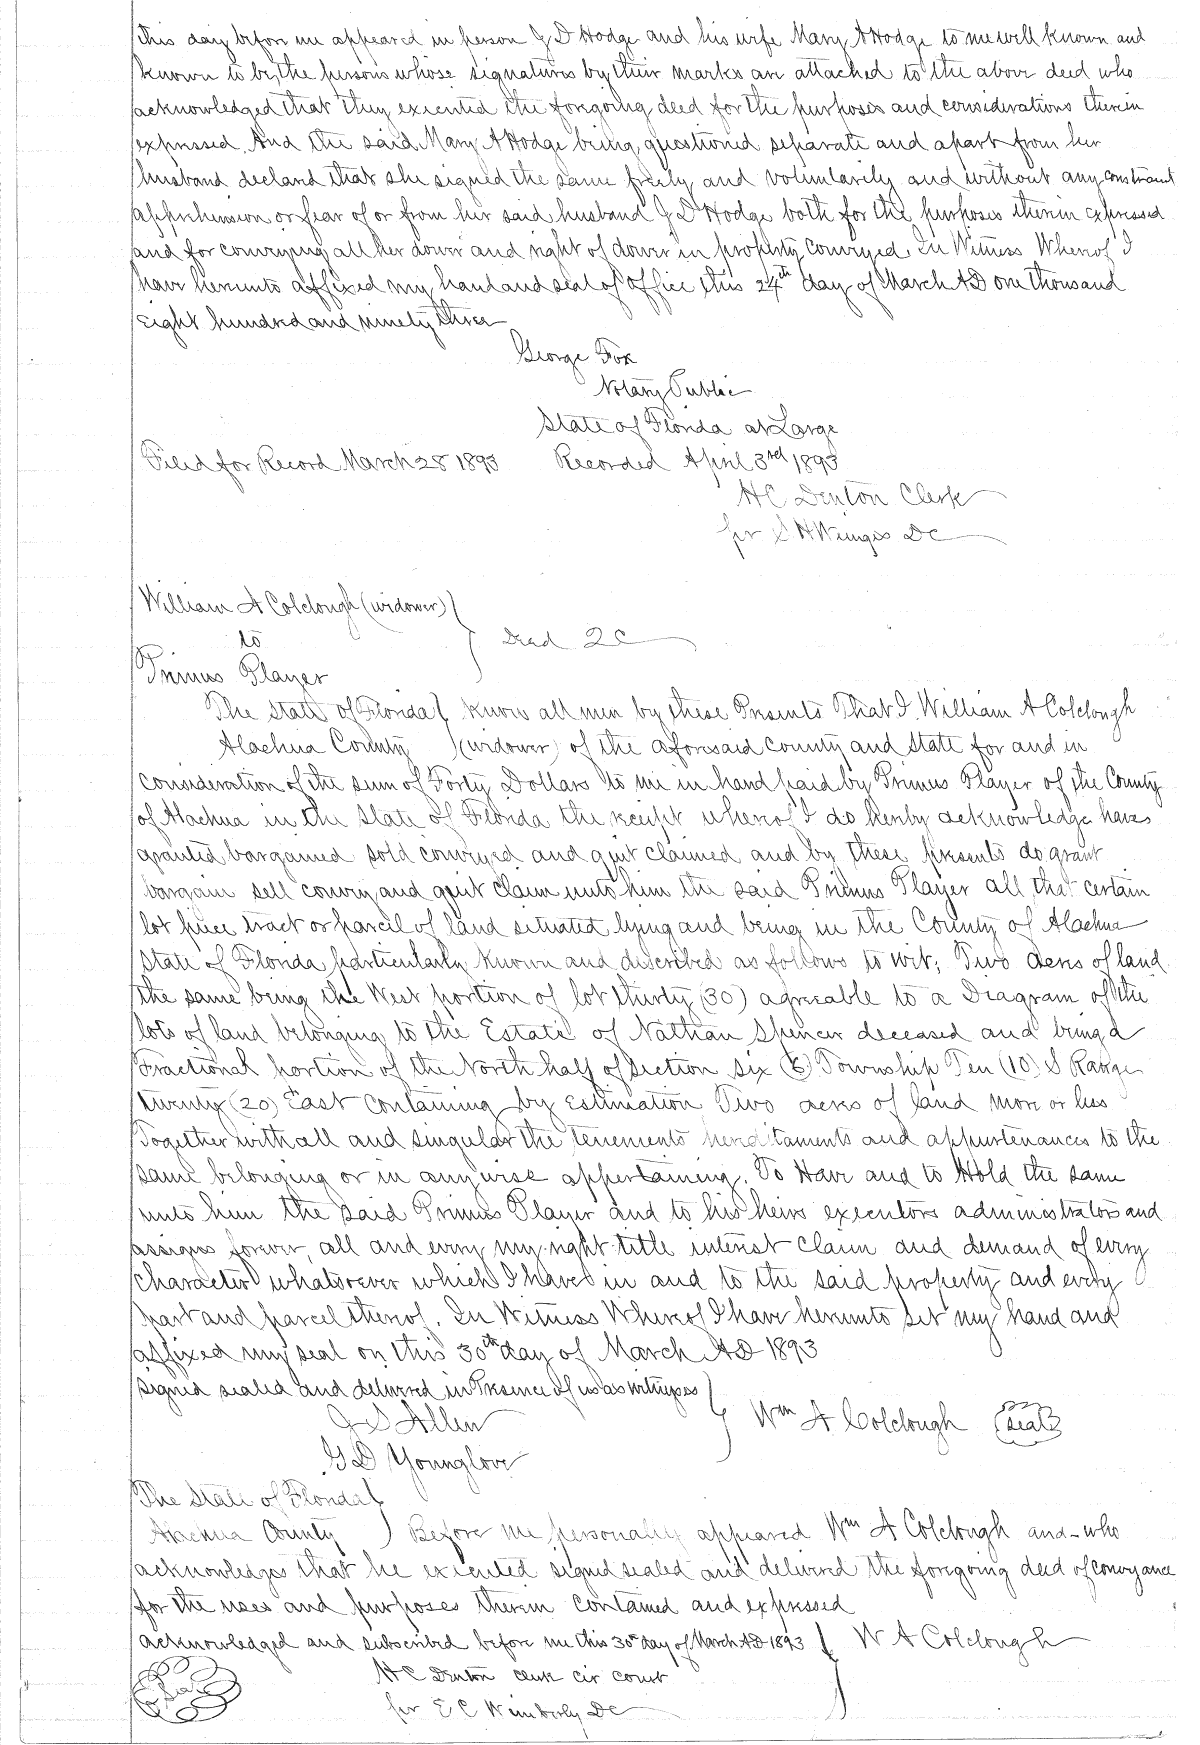 this day before me appeared in person J D Hodge and his wife Mary A Hodge to me well known and
known to be the persons whose signatures by their marks are attached to the above deed who
acknowledged that they executed the foregoing deed for the purposes and considerations therein
expressed. And the said Mary A Hodge being questioned separate and apart from her
husband declared that she signed the same freely and voluntarily and without any constraint
apprehension or fear of or from her said husband J D Hodge both for the purposes therein expressed
and for conveying all her dower and right of dower in property conveyed In Witness Whereof I
have hereunto affixed my hand and seal of office this 24th day of March AD one thousand
eight hundred and ninety three
George Fox
Notary Public
State of Florida at Large
Filed for Record March 28 1893 Recorded April 3rd 1893
H C Denton Clerk
per S H Wienges DC
William A Colclough (widower)
to
Deed 2C
Primus Player
The State of Florida Know all men by these Presents That I William A Colclough
Alachua County (widower) of the aforesaid county and state for and in
consideration of the sum of Forty Dollars to me in hand paid by Primus Player of the County
of Alachua in the State of Florida the receipt whereof I do hereby acknowledge have
granted bargained sold conveyed and quit claimed and by these presents do grant
bargain sell convey and quit claim unto him the said Primus Player all that certain
lot piece tract or parcel of land situated lying and being in the County of Alachua
State of Florida particularly known and described as follows to wit; Two acres of land
the same being the West portion of lot thirty (30) agreeable to a Diagram of the
lots of land belonging to the Estate of Nathan Spencer deceased and being a
Fractional portion of the North half of Section six (6) Township Ten (10) S Range
twenty (20) East containing by Estimation Two acres of land more or less
Together with all and singular the tenements hereditaments and appurtenances to the
same belonging or in anywise appertaining. To Have and to Hold the same
unto him the said Primus Player and to his heirs executors administrators and
assigns forever, all and every my right title interest claim and demand of every
character whatsoever which I have in and to the said property and every
part and parcel thereof. In Witness Whereof I have hereunto set my hand and
affixed my seal on this 30th day of March AD 1893
signed sealed and delivered in Presence of us as witnesses
J S Allen Wm A Colclough (seal)
G D Younglove
The State of Florida
Alachua County Before me personally appeared Wm A Colclough and who
acknowledges that he executed signed sealed and delivered the foregoing deed of conveyance
for the uses and purposes therein contained and expressed
acknowledged and subscribed before me this 30th day of March AD 1893 W A Colclough
H C Denton clerk cir court
Seal per E C Wimberly DC